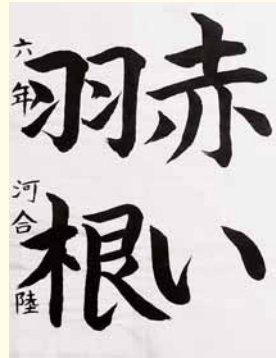 赤い
羽根
六年 河合陸